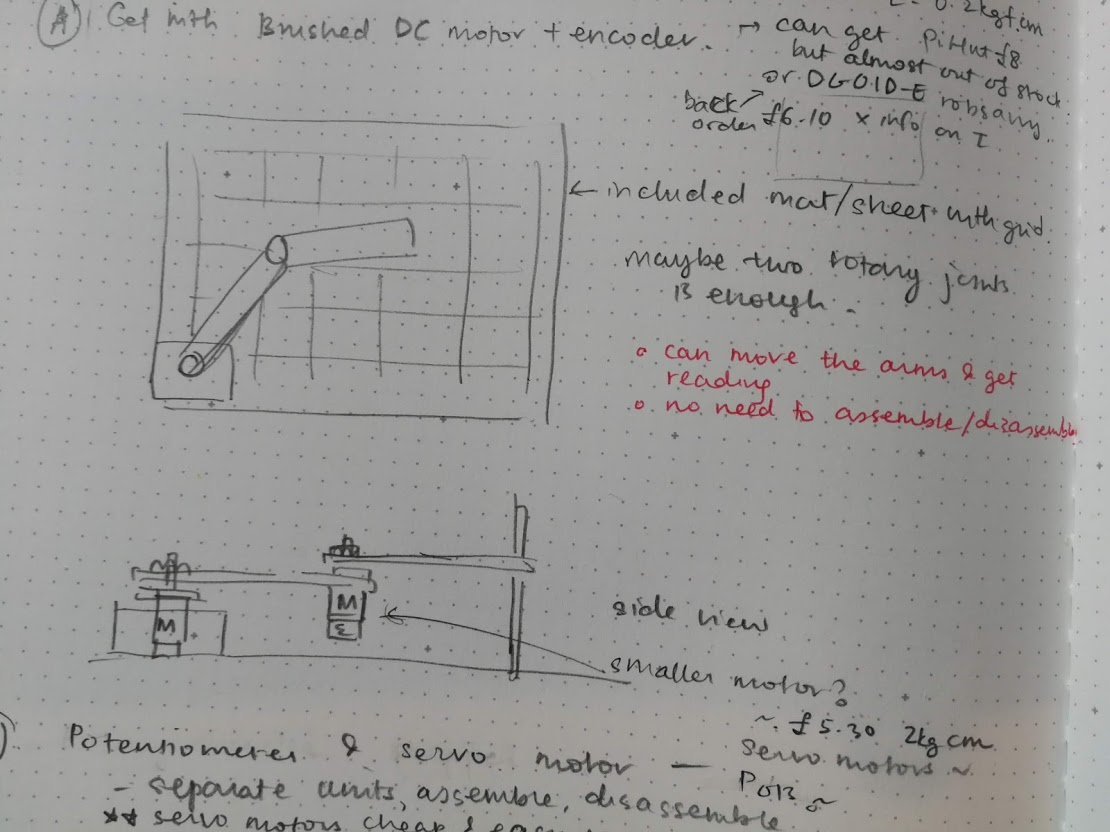 0.2kgf.cm
(A) Get with Brushed DC motor + encoder. → can get PiHut £8
but almost out of stock
or DG01D-E robsavvy
back order £6.10 x info on τ
← included mat/sheet with grid.
maybe two rotary joints
is enough.
o can move the arms & get
reading
o no need to assemble/disassemble
M
M
E
side view
smaller motor?
~ £5.30 2kg cm
Potentiometer & servo motor — servo motors ~
- separate units, assemble, disassemble
** servo motors cheap &